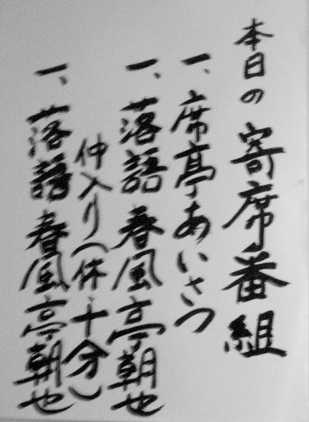 本日の寄席番組
一、席亭あいさつ
一、落語 春風亭朝也
仲入り(休・十分)
一、落語 春風亭朝也